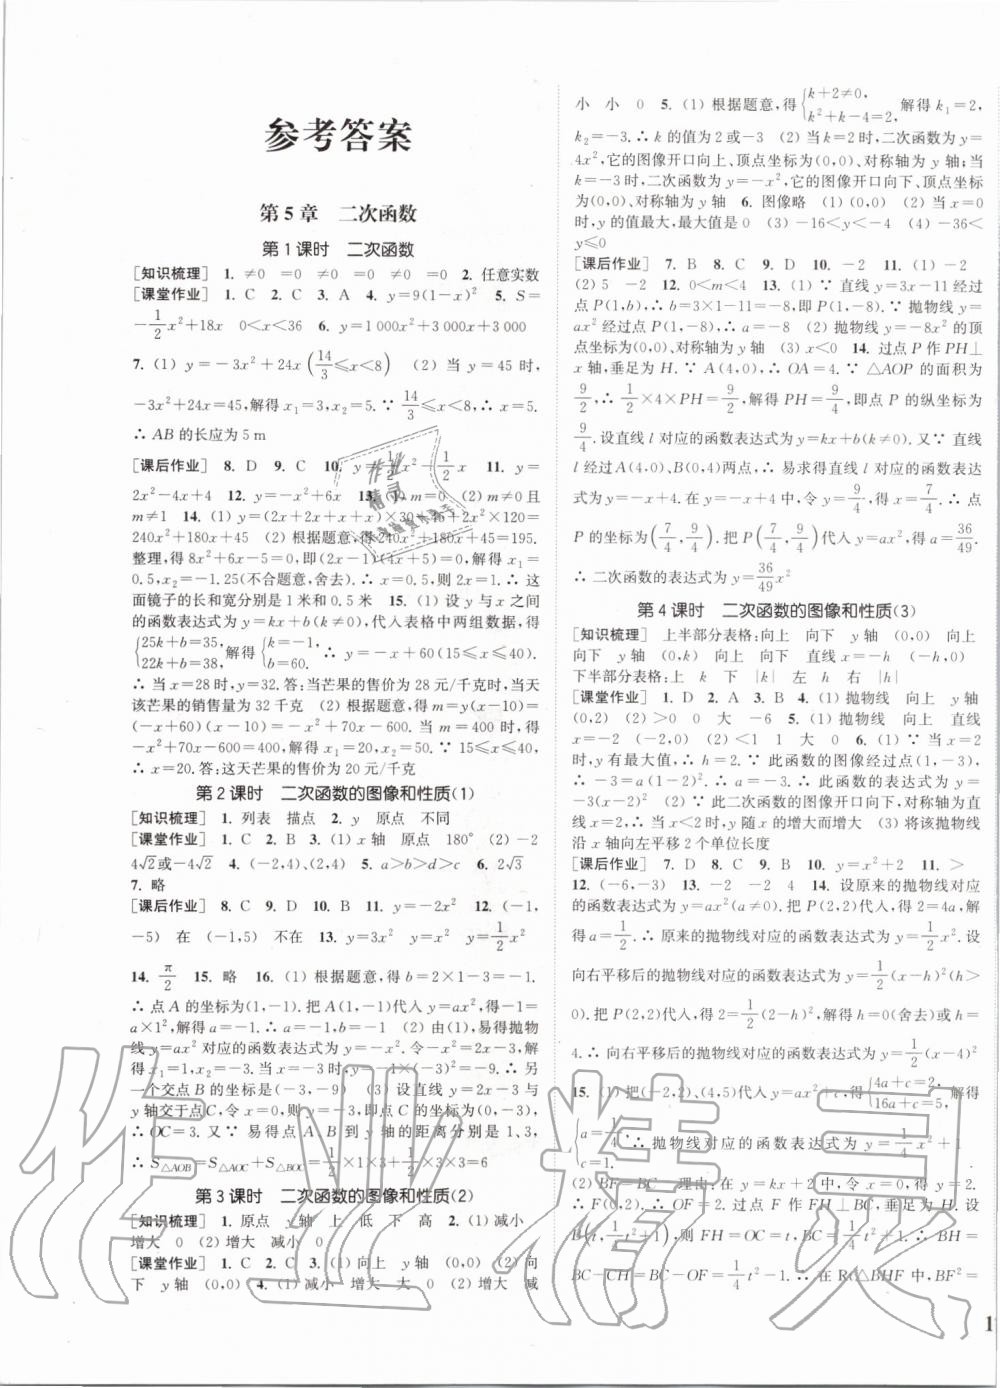 参考答案
第5章 二次函数
第1课时 二次函数
[知识梳理] 1. ≠0 =0 ≠0 =0 ≠0 2. 任意实数
[课堂作业] 1. C 2. C 3. A 4. y=9(1-x)² 5. S=
-1/2x²+18x 0<x<36 6. y=1 000x²+3 000x+3 000
7. (1) y=-3x²+24x(14/3≤x<8) (2) 当 y=45 时,
-3x²+24x=45,解得 x₁=3,x₂=5.∵ 14/3≤x<8,∴ x=5.
∴ AB 的长应为 5 m
[课后作业] 8. D 9. C 10. y=1/2x²-1/2x 11. y=
2x²-4x+4 12. y=-2x²+6x+2 13. (1) m≠0 (2) m≠0且
m≠1 14. (1) y=(2x+2x+x+x)×30+45+2x²×120=
240x²+180x+45 (2) 根据题意,得 240x²+180x+45=195.
整理,得 8x²+6x-5=0,即(2x-1)(4x+5)=0.解得 x₁=
0.5,x₂=-1.25(不合题意,舍去).∴ x=0.5.∴ 2x=1.答:这
面镜子的长和宽分别是1米和0.5米 15. (1) 设 y 与 x 之间
的函数表达式为 y=kx+b(k≠0),代入表格中两组数据,得
{25k+b=35, 22k+b=38, 解得{k=-1, b=60. ∴ y=-x+60(15≤x≤40).
∴ 当 x=28 时,y=32.答:当芒果的售价为 28 元/千克时,当天
该芒果的销售量为 32 千克 (2) 根据题意,得 m=y(x-10)=
(-x+60)(x-10)=-x²+70x-600.当 m=400 时,得
-x²+70x-600=400.解得 x₁=20,x₂=50.∵ 15≤x≤40,
∴ x=20.答:这天芒果的售价为 20 元/千克
第2课时 二次函数的图像和性质(1)
[知识梳理] 1. 列表 描点 2. y 原点 不同
[课堂作业] 1. C 2. B 3. (1) x轴 原点 180° (2) -2
4√2或-4√2 4. (-2,4)、(2,4) 5. a>b>d>c 6. 2√3
7. 略
[课后作业] 8. C 9. D 10. B 11. y=-2x² 12. (-1,
-5) 在 (-1,5) 不在 13. y=3x² y=x² y=1/2x²
14. π/2 15. 略 16. (1) 根据题意,得 b=2×1-3=-1.
∴ 点 A 的坐标为(1,-1).把 A(1,-1)代入 y=ax²,得-1=
a×1²,解得 a=-1.∴ a=-1,b=-1 (2) 由(1),易得抛物
线 y=ax² 对应的函数表达式为 y=-x².令-x²=2x-3,解
得 x₁=1,x₂=-3.当 x=-3 时,y=-1×(-3)²=-9.∴ 另
一个交点 B 的坐标为(-3,-9) (3) 设直线 y=2x-3 与
y轴交于点C,令 x=0,则 y=-3,即点 C 的坐标为(0,-3).
∴ OC=3.又∵ 易得点 A、B 到 y 轴的距离分别是1、3,
∴ S△AOB=S△AOC+S△BOC=1/2×1×3+1/2×3×3=6
第3课时 二次函数的图像和性质(2)
[知识梳理] 1. 原点 y轴 上 低 下 高 2. (1) 减小
增大 0 (2) 增大 减小 0
[课堂作业] 1. C 2. C 3. (1) 向上 y轴 (0,0) (2) 向
下 y轴 (0,0) 4. (1) 减小 增大 大 0 (2) 增大 减
小 小 0 5. (1) 根据题意,得{k+2≠0, k²+k-4=2, 解得 k₁=2,
k₂=-3.∴ k 的值为2或-3 (2) 当 k=2 时,二次函数为 y=
4x²,它的图像开口向上、顶点坐标为(0,0)、对称轴为 y 轴;当
k=-3时,二次函数为 y=-x²,它的图像开口向下、顶点坐标
为(0,0)、对称轴为 y轴 6. 图像略 (1) (0,0) (2) 当 x=
0时,y的值最大,最大值是0 (3) -16<y<-4 (4) -36<
y≤0
[课后作业] 7. B 8. C 9. D 10. -2 11. (1) -2
(2) 5 -2 12. 0<m<4 13. (1) ∵ 直线 y=3x-11 经过
点 P(1,b),∴ b=3×1-11=-8,即 P(1,-8).∵ 抛物线 y=
ax² 经过点 P(1,-8),∴ a=-8 (2) 抛物线 y=-8x² 的顶
点坐标为(0,0)、对称轴为y轴 (3) x<0 14. 过点 P 作 PH⊥
x 轴,垂足为 H.∵ A(4,0),∴ OA=4.∵ △AOP 的面积为
9/2,∴ 1/2×4×PH=9/2,解得 PH=9/4,即点 P 的纵坐标为
9/4.设直线 l 对应的函数表达式为 y=kx+b(k≠0).又∵ 直线
l 经过点 A(4,0)、B(0,4)两点,∴ 易求得直线 l 的函数表达
式为 y=-x+4.在 y=-x+4 中,令 y=9/4,得 x=7/4.∴ 点
P 的坐标为(7/4,9/4).把 P(7/4,9/4)代入y=ax²,得 a=36/49.
∴ 二次函数的表达式为 y=36/49x²
第4课时 二次函数的图像和性质(3)
[知识梳理] 上半部分表格:向上 向下 y轴 (0,0) 向上
向下 y轴 (0,k) 向上 向下 直线x=-h (-h,0)
下半部分表格:上 k 下 |k| 左 h 右 |h|
[课堂作业] 1. D 2. A 3. B 4. (1) 抛物线 向上 y轴
(0,2) (2) >0 0 大 -6 5. (1) 抛物线 向上 直线
x=-2 (-2,0) (2) <1 1 大 0 6. (1) ∵ 当 x=2 时,
有最大值,∴ h=2.∵ 此函数的图像经过点(1,-3),∴
-3=a(1-2)².∴ a=-3.∴ 此函数的表达式为 y=
-3(x-2)² (2) ∵ 此二次函数的图像开口向下、对称轴为直线
x=2,∴ 当 x<2 时,y 随 x 的增大而增大 (3) 将该抛物线
沿 x 轴向左平移2个单位长度
[课后作业] 7. D 8. C 9. B 10. y=x²+2 11. >
12. (-6,-3) 13. -2 -2 14. 设原来的抛物线对应
的函数表达式为 y=ax²(a≠0).把 P(2,2)代入,得 2=4a,解
得 a=1/2.∴ 原来的抛物线对应的函数表达式为 y=1/2x².设
向右平移后的抛物线对应的函数表达式为 y=1/2(x-h)²(h>
0).把 P(2,2)代入,得 2=1/2(2-h)²,解得 h=0(舍去)或 h=
4.∴ 向右平移后的抛物线对应的函数表达式为 y=1/2(x-4)²
15. (1) 把(-2,2)、(4,5)代入 y=ax²+c,得{4a+c=2, 16a+c=5, 解得
{a=1/4, c=1. ∴ 抛物线对应的函数表达式为 y=1/4x²+1
(2) BF=BC 理由:在 y=kx+2 中,令 x=0,得 y=2.
∴ F(0,2).∴ OF=2.过点 F 作 FH⊥BC,垂足为 H.设
B(t,1/4t²+1),则 FH=OC=t,BC=1/4t²+1.∴ BH=
BC-CH=BC-OF=1/4t²-1.∴ 在 Rt△BHF 中,BF²=
1
作业精灵
作业精灵